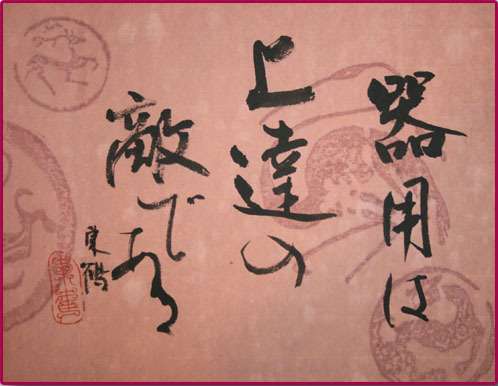 器用は
上達の
敵である
東鶴